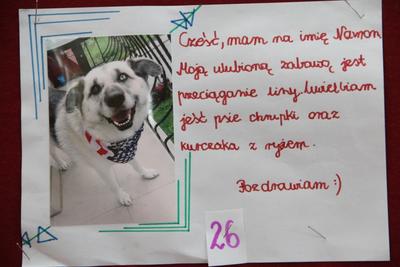 Cześć, mam na imię Namon
Moją ulubioną zabawą jest
przeciąganie liny. Uwielbiam
jeść psie chrupki oraz
kurczaka z ryżem.
Pozdrawiam :)
26